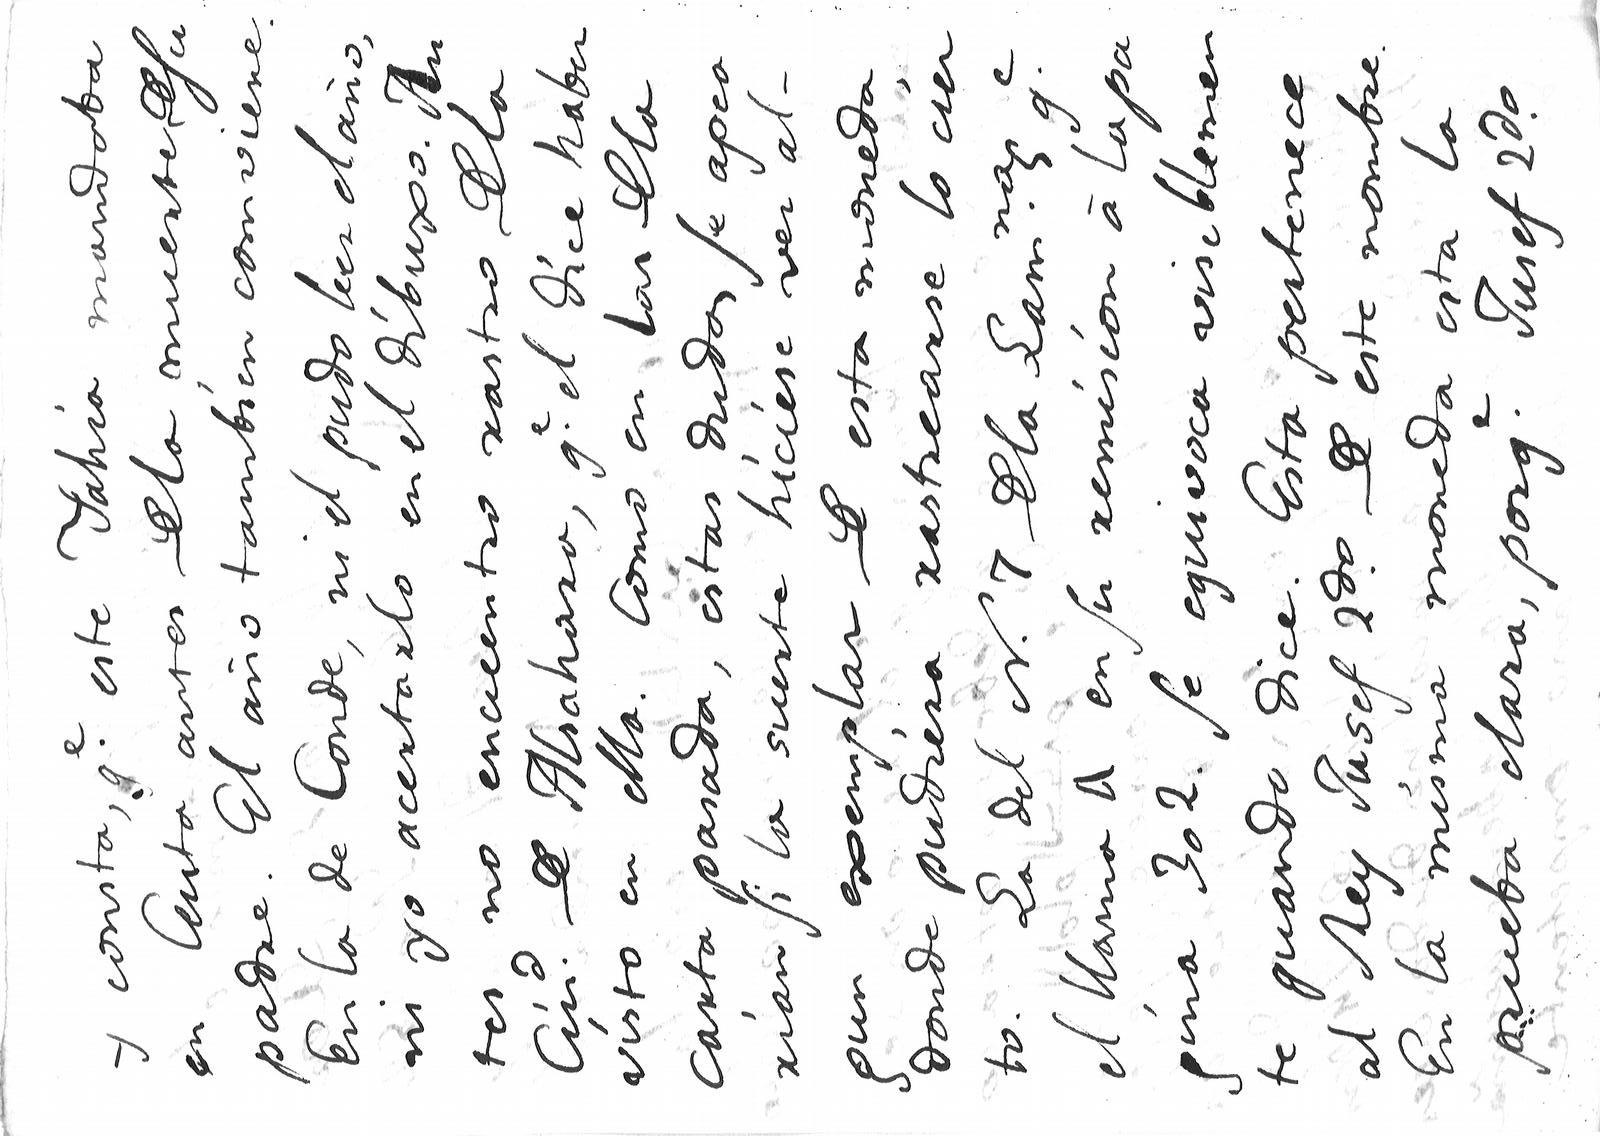 y consta, q.e este Jahia mandaba
en Ceuta antes de la muerte de su
padre. El año tambien conviene.
En la de Conde, ni el pudo leer el año,
ni yo acertarlo en el dibuxo. An
tes no encuentro rastro de la
Ciu.d de Alsaharo, q.e el dice haber
visto en ella. Como en las de la
carta pasada, estas dudas se apea
rian si la suerte hiciese ver al-
gun exemplar de esta moneda
donde pudiera rastrearse lo cier
to. La del N.º 7 de la Lam.na q.e
el llama A en su remision à la pa
gina 302. se equivoca visiblemen
te quando dice. Esta pertenece
al Rey Jusef 2do. de este nombre.
En la misma moneda esta la
prueba clara, porq.e Jusef 2do.